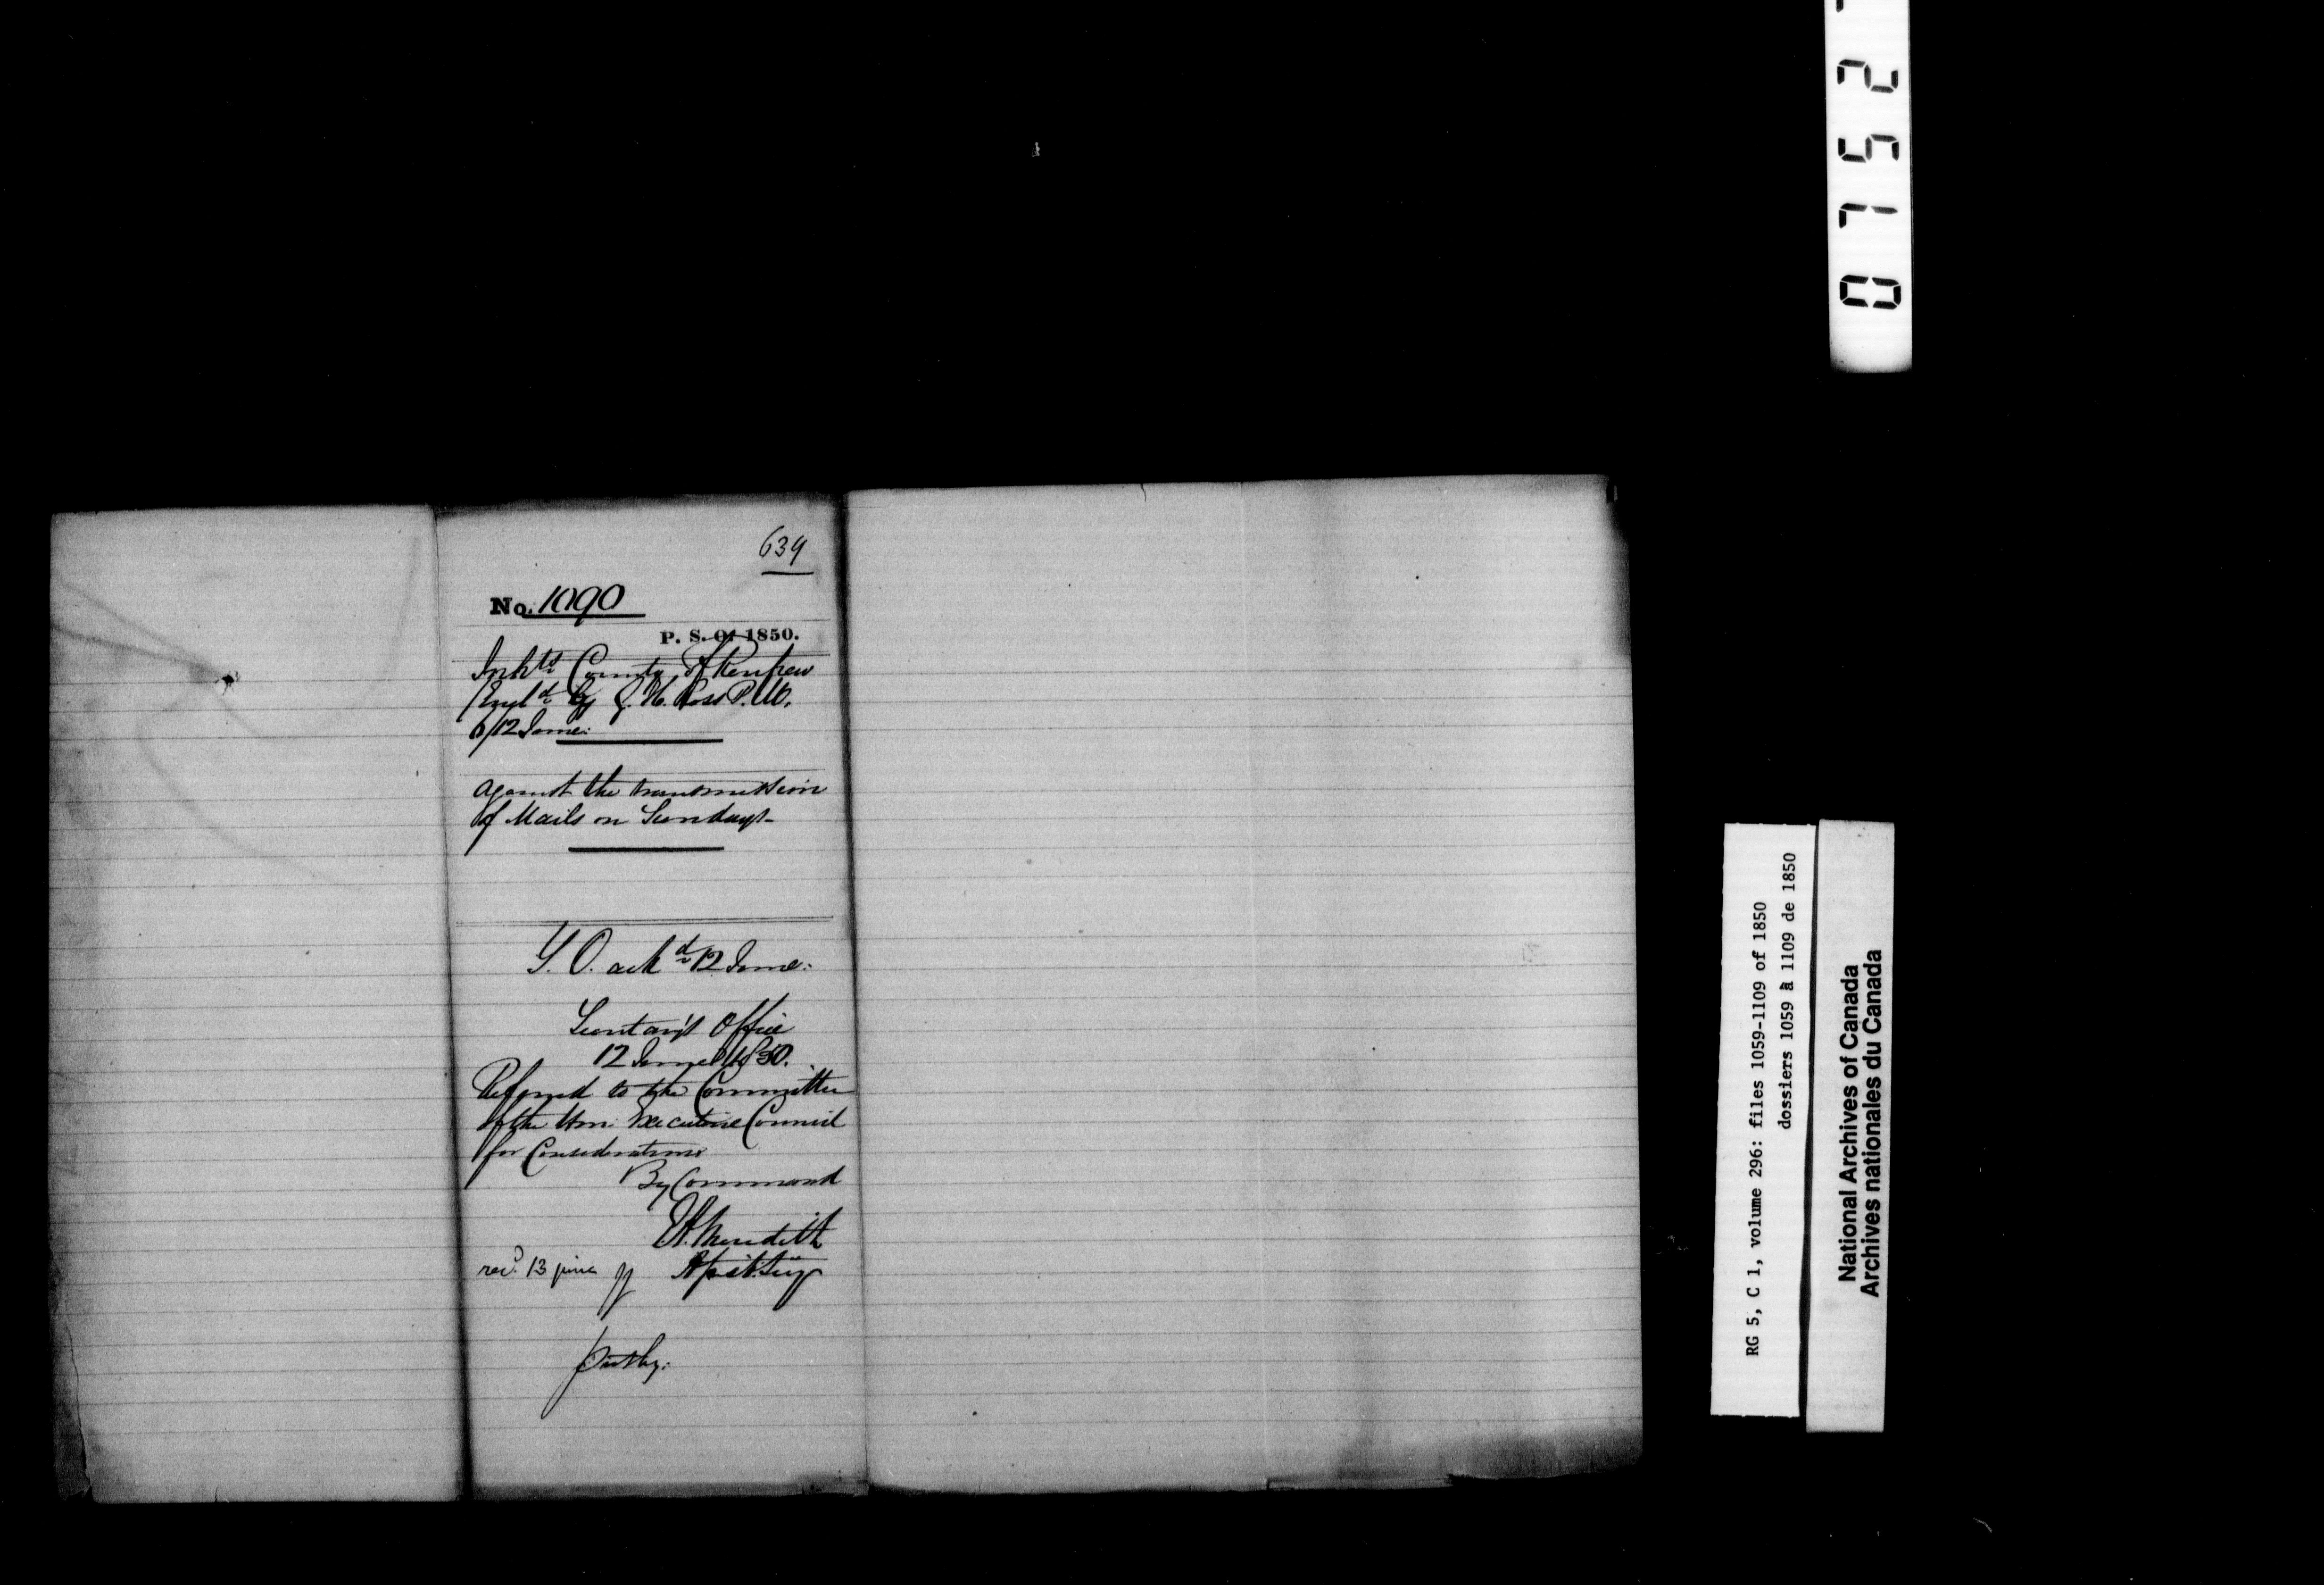 639
No. 1090
P. S. O. 1850.
Inhts County of Renfrew
by Ross P.M.
6/12 June:
against the transmission
of Mails on Sundays-
ackd 12 June:
Secretary's Office
12 June 1850.
Referred to the Committee
of the Hon: Executive Council
for Consideration
By Command
Meredith
recd. 13 june
Asst. Secy
0752
RG 5, C 1, volume 296: files 1059-1109 of 1850
dossiers 1059 à 1109 de 1850
National Archives of Canada
Archives nationales du Canada